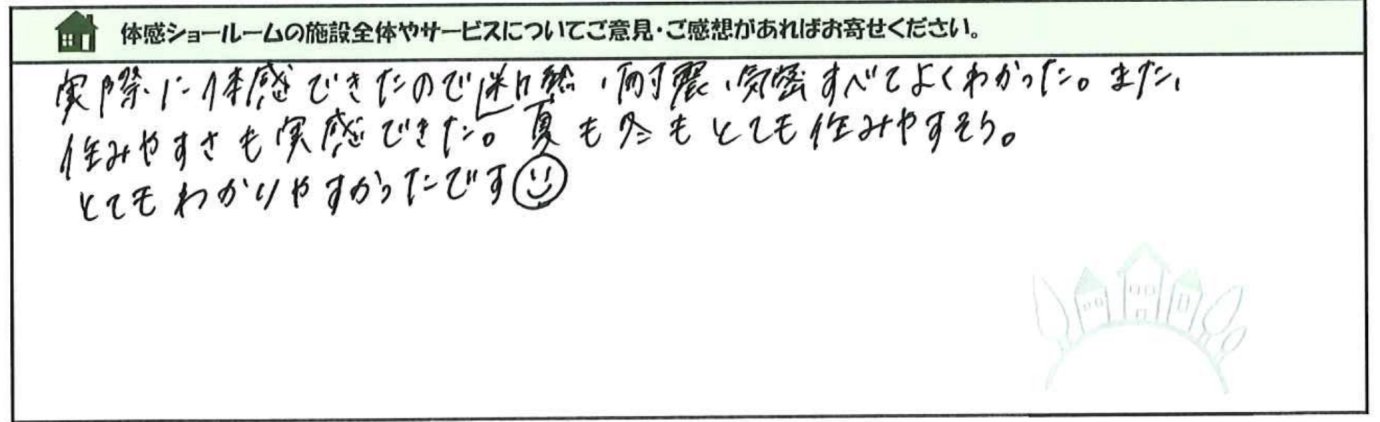 体感ショールームの施設全体やサービスについてご意見・ご感想があればお寄せください。
実際に体感できたので断熱、耐震、気密すべてよくわかった。また、
住みやすさも実感できた。夏も冬もとても住みやすそう。
とてもわかりやすかったです